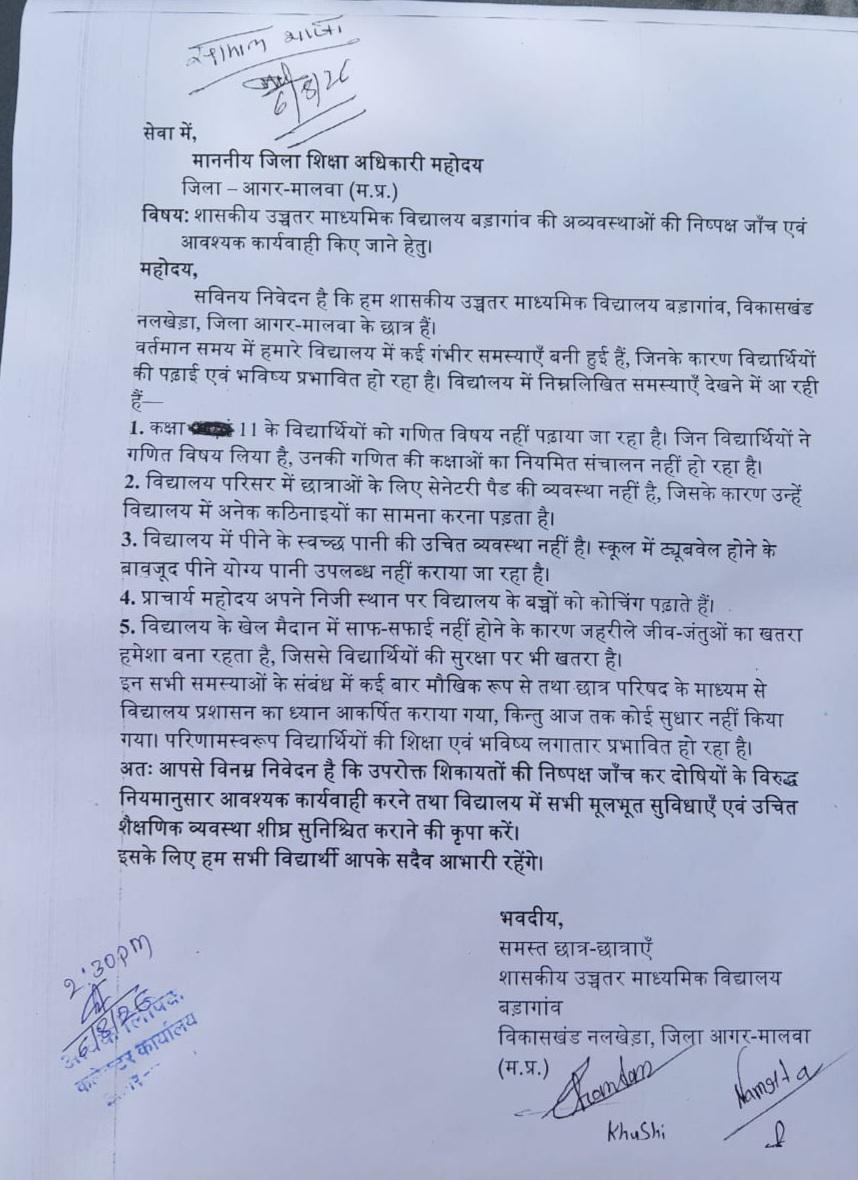 6/8/26
सेवा में,
माननीय जिला शिक्षा अधिकारी महोदय
जिला – आगर-मालवा (म.प्र.)
विषय: शासकीय उच्चतर माध्यमिक विद्यालय बड़ागांव की अव्यवस्थाओं की निष्पक्ष जाँच एवं
आवश्यक कार्यवाही किए जाने हेतु।
महोदय,
सविनय निवेदन है कि हम शासकीय उच्चतर माध्यमिक विद्यालय बड़ागांव, विकासखंड
नलखेड़ा, जिला आगर-मालवा के छात्र हैं।
वर्तमान समय में हमारे विद्यालय में कई गंभीर समस्याएँ बनी हुई हैं, जिनके कारण विद्यार्थियों
की पढ़ाई एवं भविष्य प्रभावित हो रहा है। विद्यालय में निम्नलिखित समस्याएँ देखने में आ रही
हैं—
1. कक्षा 11 के विद्यार्थियों को गणित विषय नहीं पढ़ाया जा रहा है। जिन विद्यार्थियों ने
गणित विषय लिया है, उनकी गणित की कक्षाओं का नियमित संचालन नहीं हो रहा है।
2. विद्यालय परिसर में छात्राओं के लिए सेनेटरी पैड की व्यवस्था नहीं है, जिसके कारण उन्हें
विद्यालय में अनेक कठिनाइयों का सामना करना पड़ता है।
3. विद्यालय में पीने के स्वच्छ पानी की उचित व्यवस्था नहीं है। स्कूल में ट्यूबवेल होने के
बावजूद पीने योग्य पानी उपलब्ध नहीं कराया जा रहा है।
4. प्राचार्य महोदय अपने निजी स्थान पर विद्यालय के बच्चों को कोचिंग पढ़ाते हैं।
5. विद्यालय के खेल मैदान में साफ-सफाई नहीं होने के कारण जहरीले जीव-जंतुओं का खतरा
हमेशा बना रहता है, जिससे विद्यार्थियों की सुरक्षा पर भी खतरा है।
इन सभी समस्याओं के संबंध में कई बार मौखिक रूप से तथा छात्र परिषद के माध्यम से
विद्यालय प्रशासन का ध्यान आकर्षित कराया गया, किन्तु आज तक कोई सुधार नहीं किया
गया। परिणामस्वरूप विद्यार्थियों की शिक्षा एवं भविष्य लगातार प्रभावित हो रहा है।
अतः आपसे विनम्र निवेदन है कि उपरोक्त शिकायतों की निष्पक्ष जाँच कर दोषियों के विरुद्ध
नियमानुसार आवश्यक कार्यवाही करने तथा विद्यालय में सभी मूलभूत सुविधाएँ एवं उचित
शैक्षणिक व्यवस्था शीघ्र सुनिश्चित कराने की कृपा करें।
इसके लिए हम सभी विद्यार्थी आपके सदैव आभारी रहेंगे।
भवदीय,
समस्त छात्र-छात्राएँ
शासकीय उच्चतर माध्यमिक विद्यालय
बड़ागांव
विकासखंड नलखेड़ा, जिला आगर-मालवा
(म.प्र.)
KhuShi
2:30PM
6/8/26
कलेक्टर कार्यालय